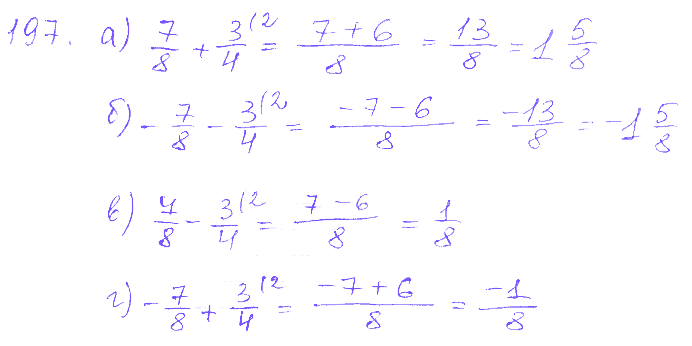 197. а) 7/8 + 3/4 (2 = (7 + 6)/8 = 13/8 = 1 5/8
б) - 7/8 - 3/4 (2 = (-7 - 6)/8 = -13/8 = -1 5/8
в) 7/8 - 3/4 (2 = (7 - 6)/8 = 1/8
г) - 7/8 + 3/4 (2 = (-7 + 6)/8 = -1/8